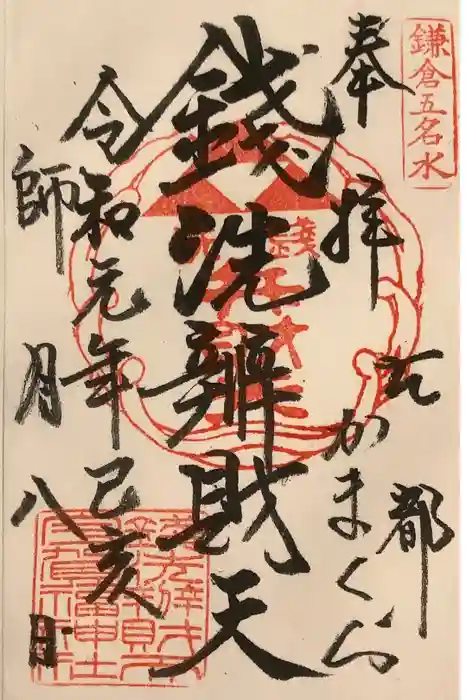 鎌倉五名水
奉拝
古都
かまくら
錢洗辨財天
令和元年己亥
師月八日